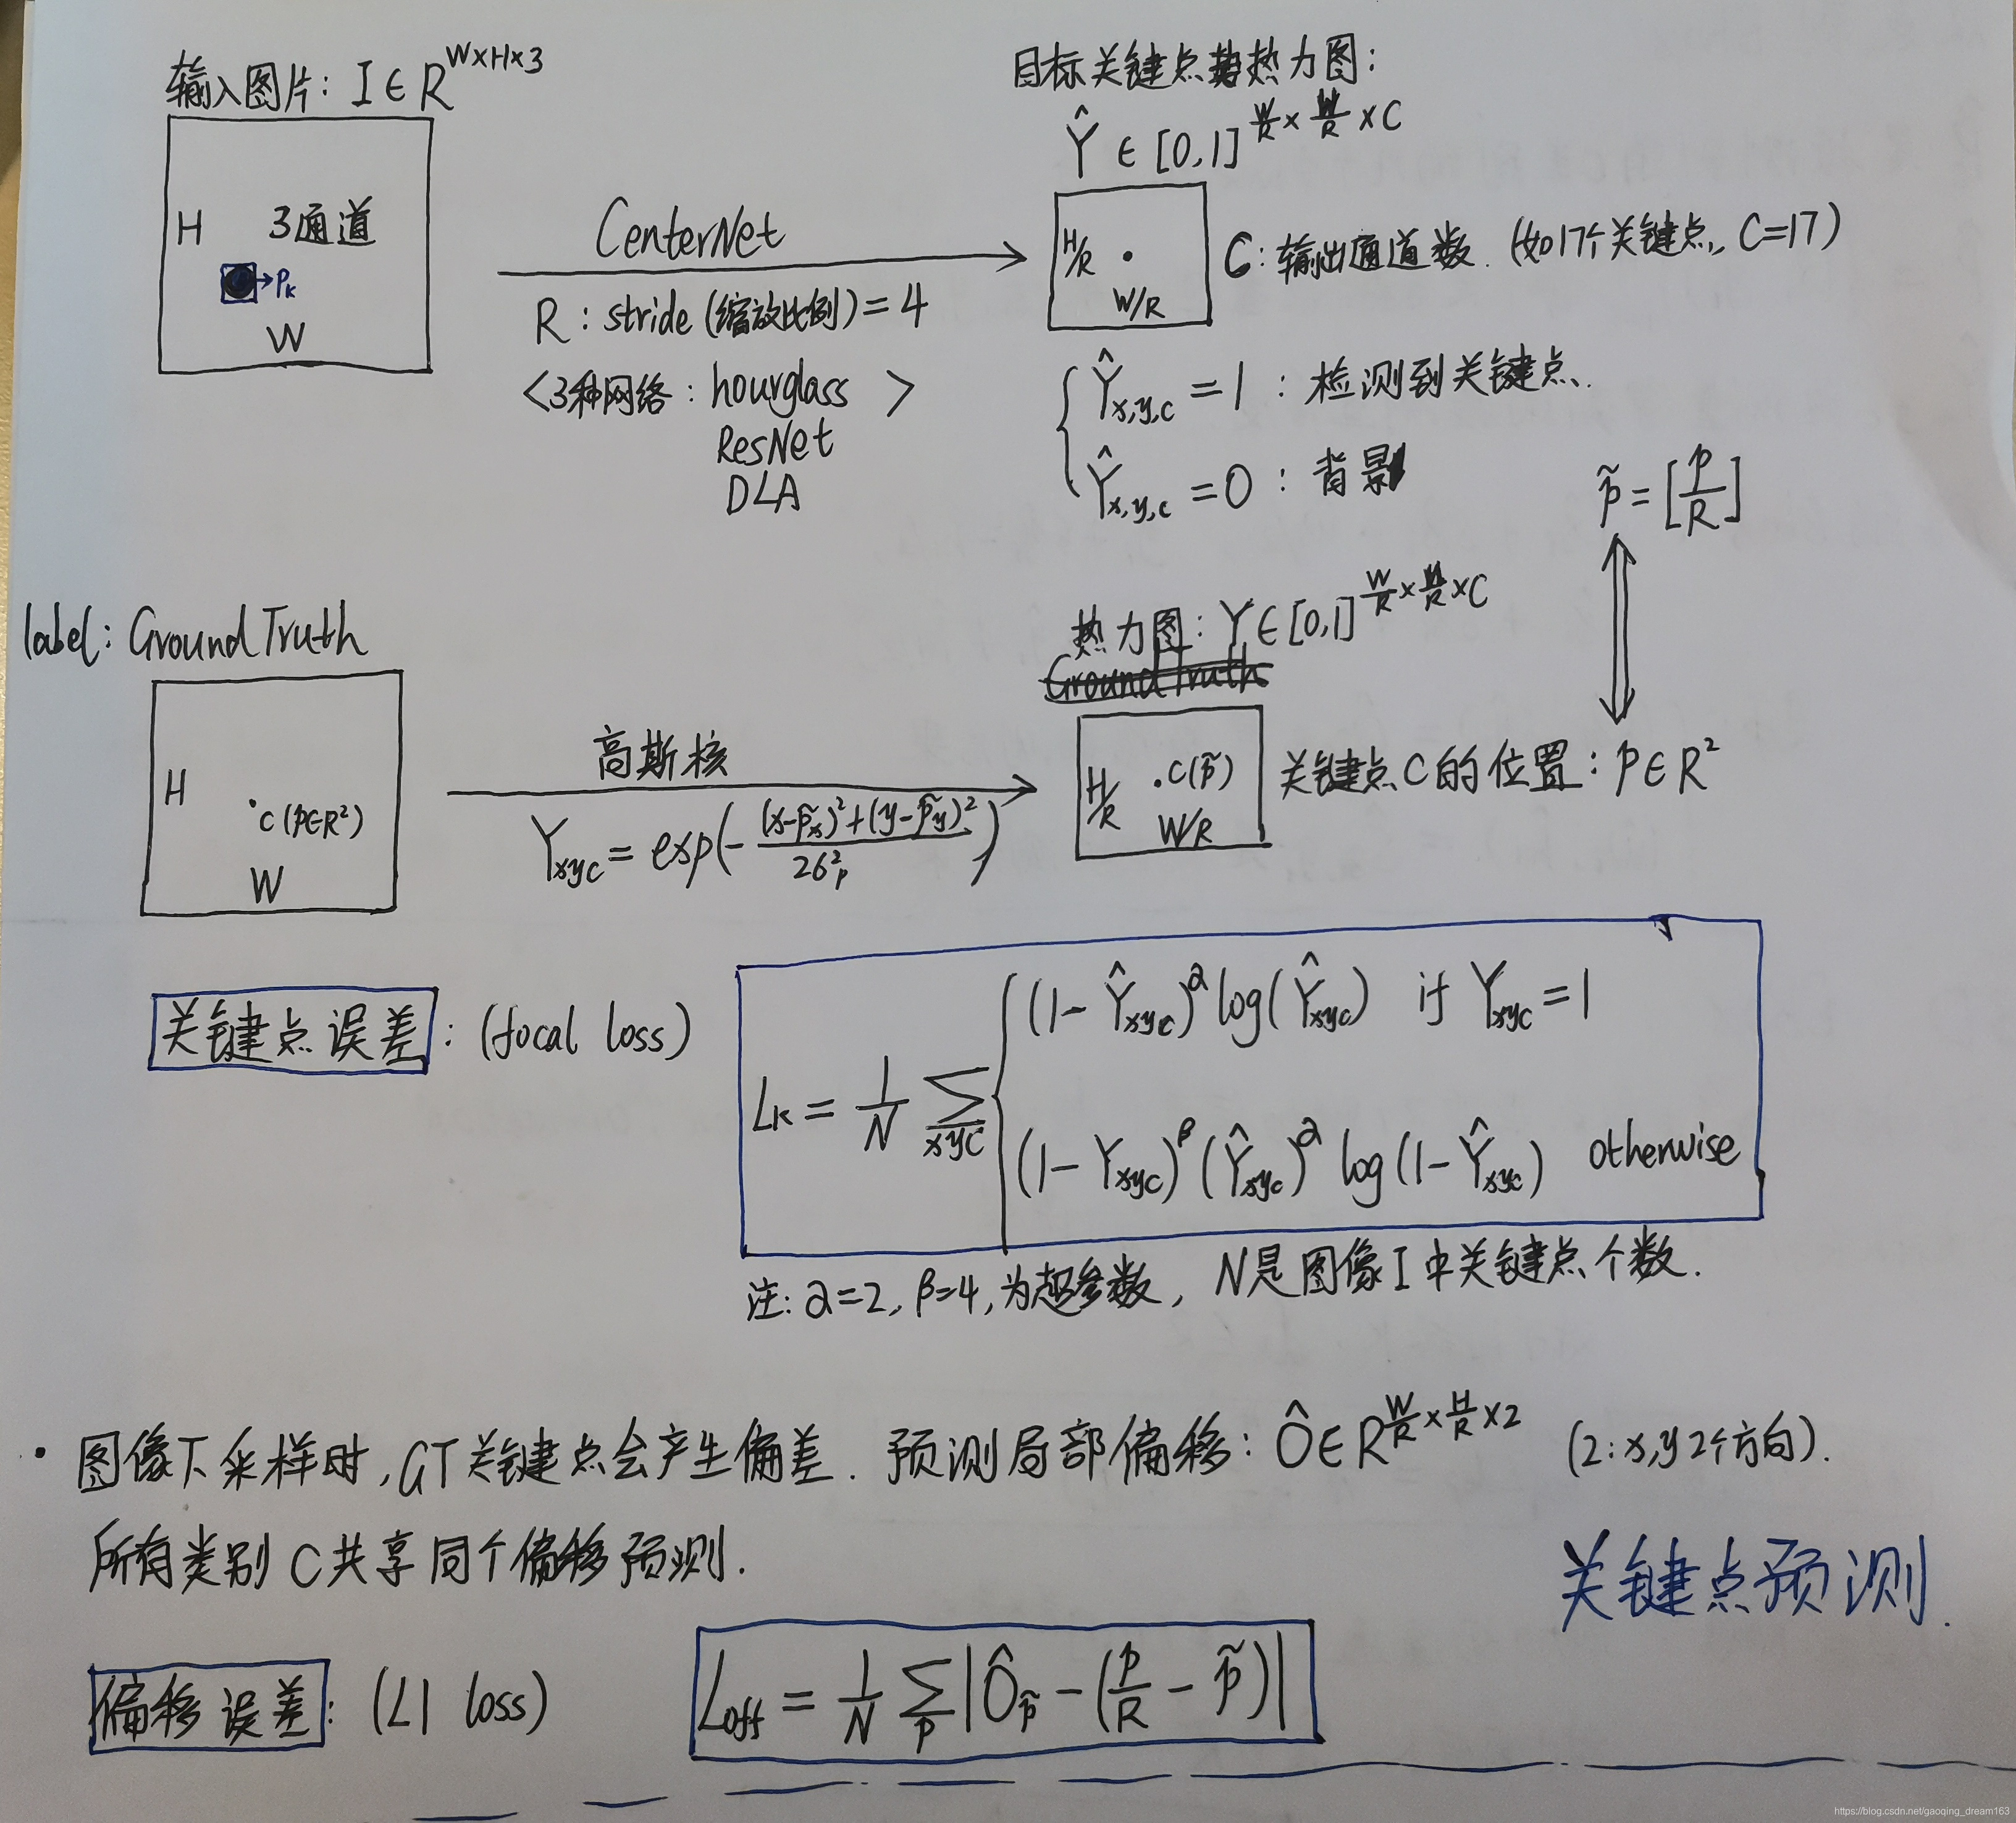 输入图片: I ∈ R^{W×H×3}
H 3通道
→P_k
W
CenterNet
R: stride (缩放比例) = 4
<3种网络: hourglass >
ResNet
DLA
目标关键点热力图:
Ŷ ∈ [0,1]^{W/R × H/R × C}
H/R
W/R
C: 输出通道数. (如17个关键点, C=17)
Ŷ_{x,y,c} = 1 : 检测到关键点.
Ŷ_{x,y,c} = 0 : 背景
p̃ = [p/R]
label: Ground Truth
H
·C (p∈R²)
W
高斯核
Y_{xyc} = exp(- ((x-p̃_x)²+(y-p̃_y)²) / 2σ_p²)
热力图: Y ∈ [0,1]^{W/R × H/R × C}
Ground Truth
H/R ·C(p̃)
W/R
关键点C的位置: p∈R²
关键点误差: (focal loss)
L_k = 1/N Σ_{xyc} { (1-Ŷ_{xyc})^α log(Ŷ_{xyc}) if Y_{xyc} = 1
(1-Y_{xyc})^β (Ŷ_{xyc})^α log(1-Ŷ_{xyc}) otherwise
注: α=2, β=4, 为超参数, N是图像I中关键点个数.
· 图像下采样时, GT关键点会产生偏差. 预测局部偏移: Ô∈R^{W/R × H/R × 2} (2: x,y 2个方向).
所有类别C共享同个偏移预测.
关键点预测.
偏移误差: (L1 loss)
L_off = 1/N Σ_p |Ô_p̃ - (p/R - p̃)|
https://blog.csdn.net/gaoqing_dream163